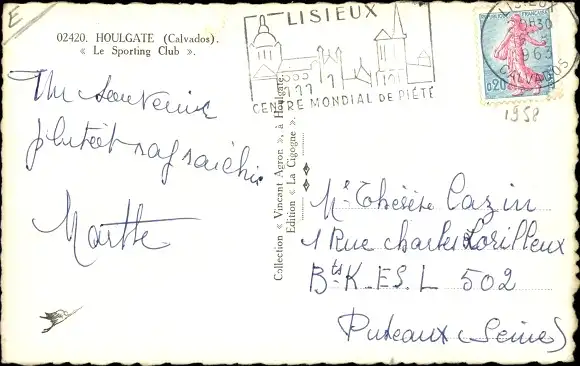 E
02420. HOULGATE (Calvados).
« Le Sporting Club ».
LISIEUX
CENTRE MONDIAL DE PIÉTÉ
CALVADOS
0,20
1958
Un souvenir
plutôt rafraichi.
Marthe
Collection « Vincent Agron », à Houlgate.
Edition « La Cigogne ».
Mle Thérèse Cazin
1 Rue Charles Lorilleux
Bts K. ES. L 502
Puteaux (Seine)